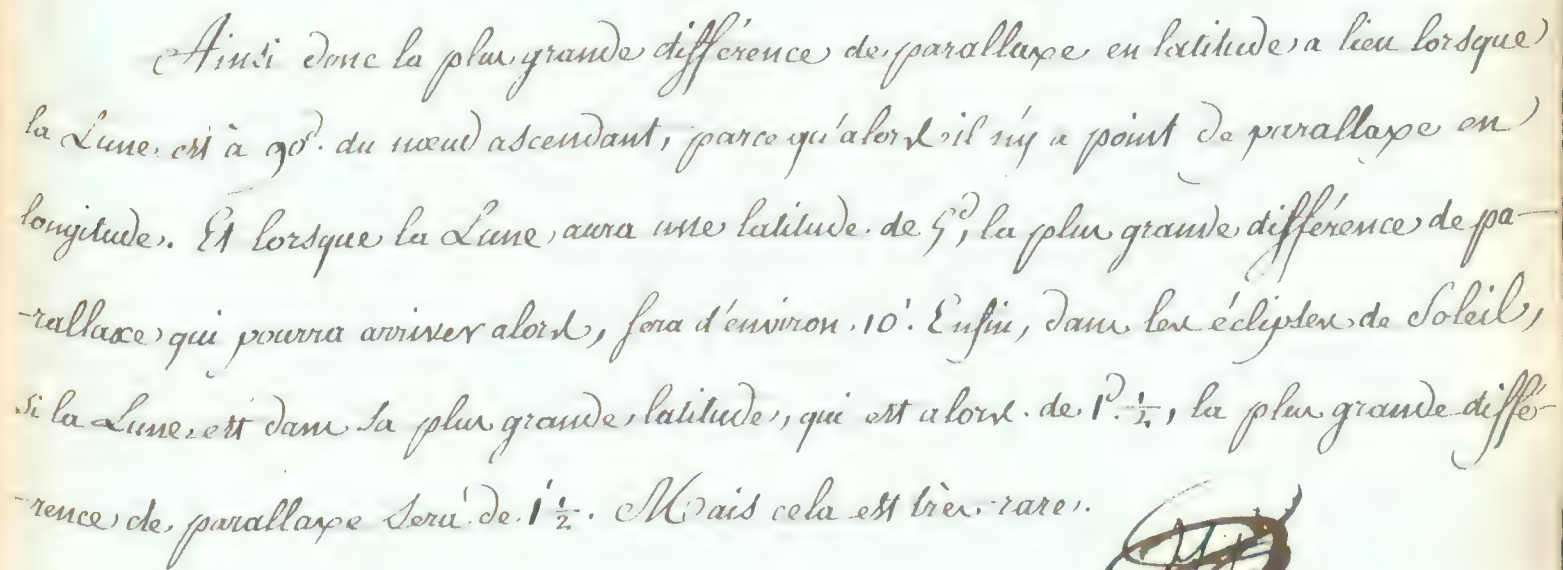 Ainsi donc la plus grande différence de parallaxe en latitude a lieu lorsque
la Lune est à 90ᵈ. du nœud ascendant, parce qu'alors il n'y a point de parallaxe en
longitude. Et lorsque la Lune aura une latitude de 5ᵈ, la plus grande différence de pa-
-rallaxe qui pourra arriver alors, sera d'environ 10'. Enfin, dans les éclipses de Soleil,
si la Lune est dans sa plus grande latitude, qui est alors de 1ᵈ. ½, la plus grande diffé-
-rence de parallaxe sera de 1' ½. Mais cela est très-rare.